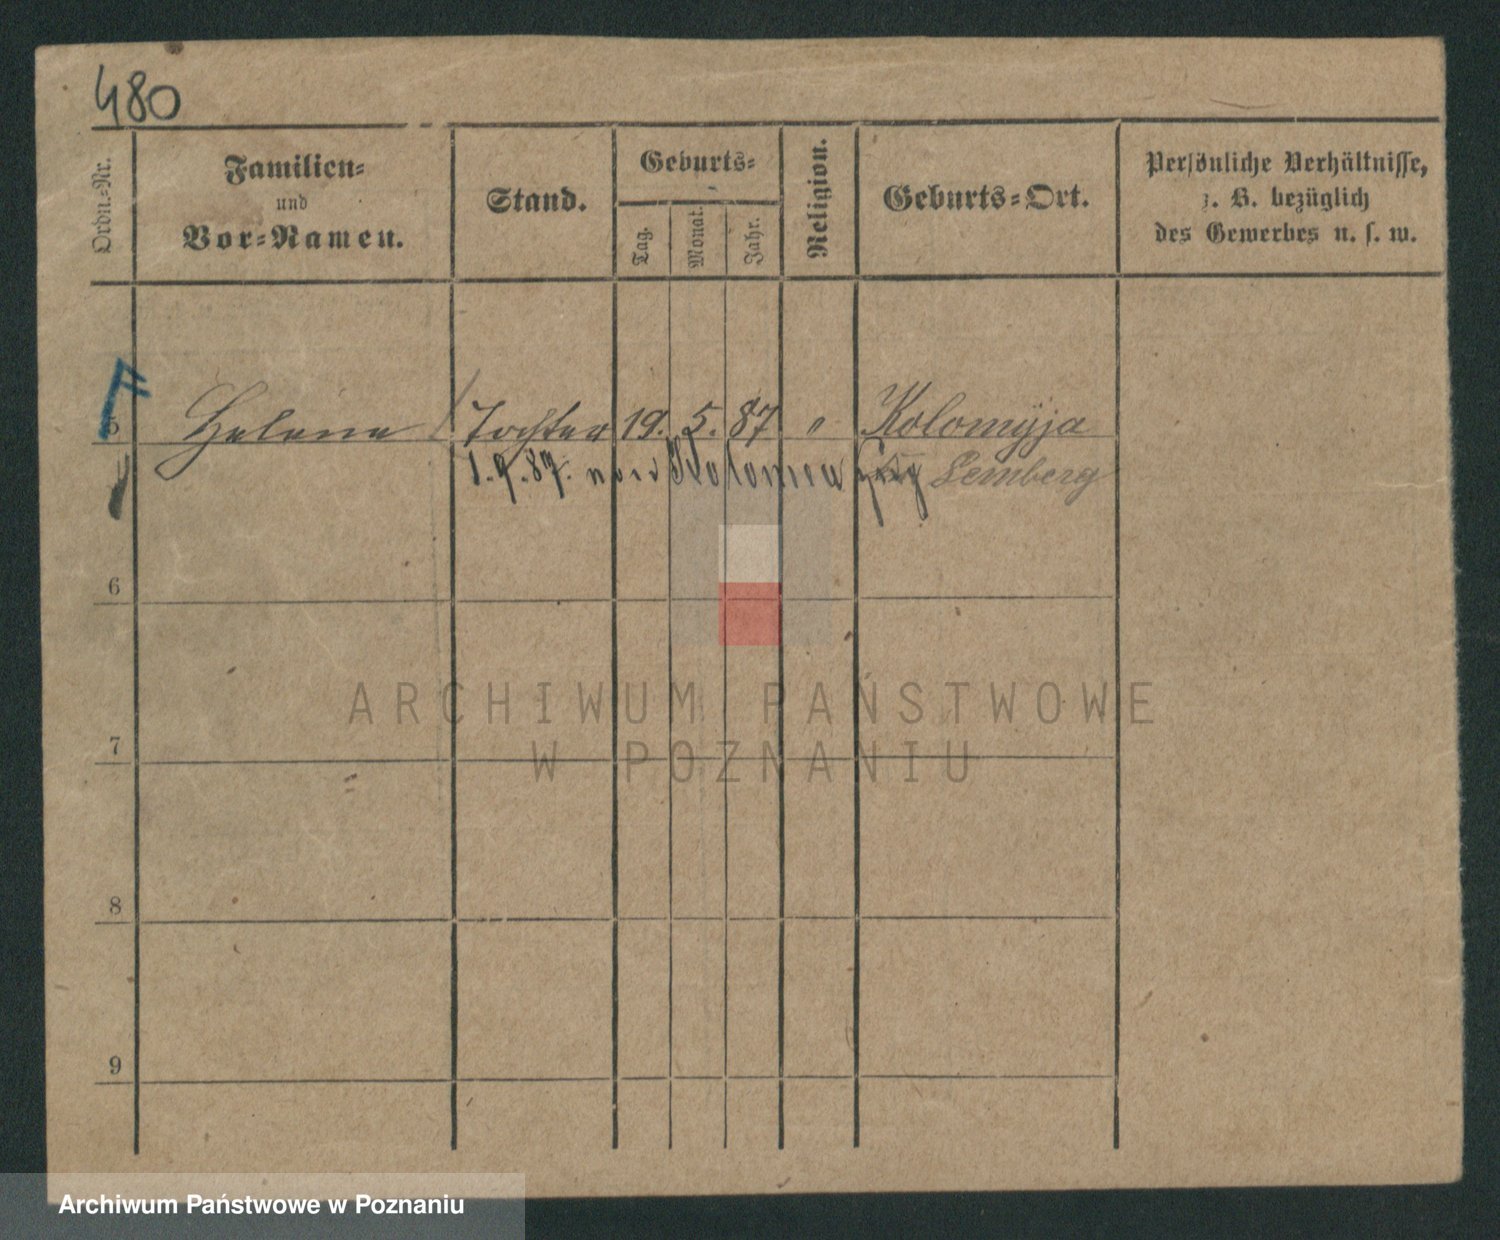 480
Ordn.-Nr.
Familien-
und
Vor-Namen.
Stand.
Geburts-
Tag.
Monat.
Jahr.
Religion.
Geburts-Ort.
Persönliche Verhältnisse,
z. B. bezüglich
des Gewerbes u. s. w.
5 Helene Tochter 19. 5. 87 " Kolomyja
1.9.87. Kolomea Lemberg
6
7
8
9
ARCHIWUM PAŃSTWOWE
W POZNANIU
Archiwum Państwowe w Poznaniu